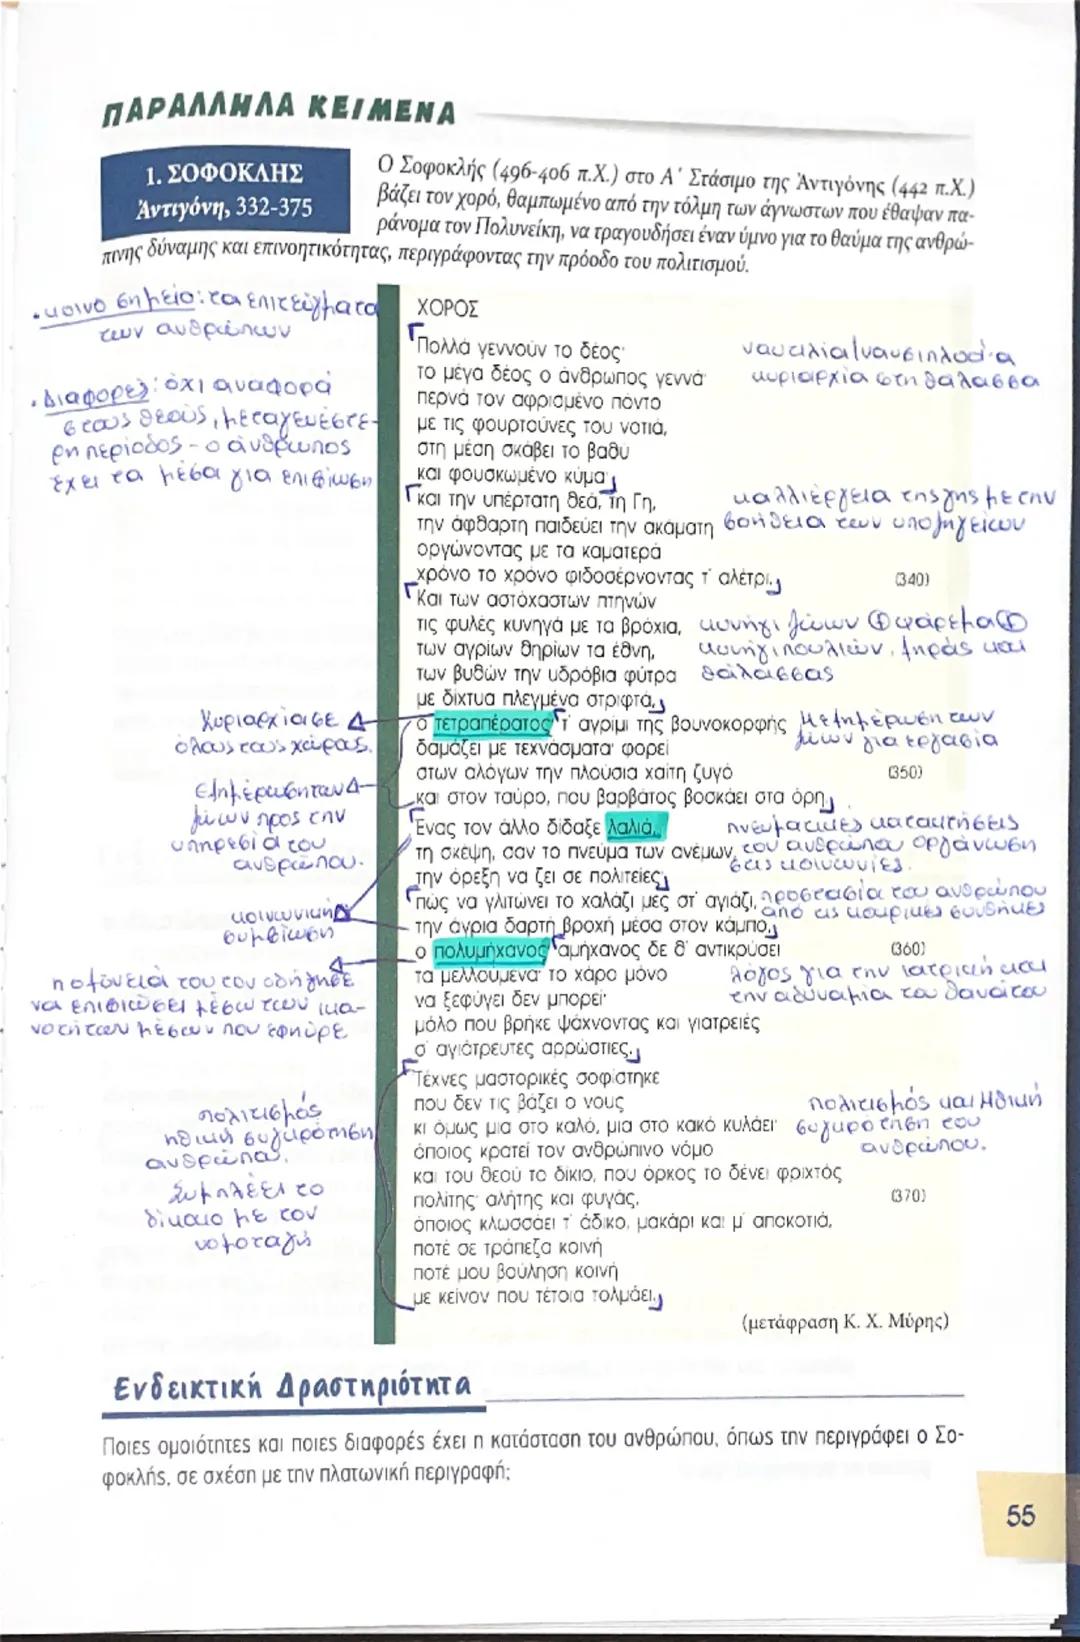 ΠΑΡΑΛΛΗΛΑ ΚΕΙΜΕΝΑ
1. ΣΟΦΟΚΛΗΣ
Ἀντιγόνη, 332-375
Ο Σοφοκλής (496-406 π.Χ.) στο Α΄ Στάσιμο της Ἀντιγόνης (442 π.Χ.)
βάζει τον χορό, θαμπωμένο από την τόλμη των άγνωστων που έθαψαν πα-
ράνομα τον Πολυνείκη, να τραγουδήσει έναν ύμνο για το θαύμα της ανθρώ-
πινης δύναμης και επινοητικότητας, περιγράφοντας την πρόοδο του πολιτισμού.
• κοινό σημείο: τα επιτεύγματα
των ανθρώπων
• Διαφορές: όχι αναφορά
στους θεούς, μεταγενέστε-
ρη περίοδος - ο άνθρωπος
έχει τα μέσα για επιβίωση
ΧΟΡΟΣ
Πολλά γεννούν το δέος·
το μέγα δέος ο άνθρωπος γεννά·
περνά τον αφρισμένο πόντο
με τις φουρτούνες του νοτιά,
στη μέση σκάβει το βαθύ
και φουσκωμένο κύμα·
και την υπέρτατη θεά, τη Γη,
την άφθαρτη παιδεύει την ακάματη
οργώνοντας με τα καματερά
χρόνο το χρόνο φιδοσέρνοντας τ' αλέτρι. (340)
Και των αστόχαστων πτηνών
τις φυλές κυνηγά με τα βρόχια,
των αγρίων θηρίων τα έθνη,
των βυθών την υδρόβια φύτρα
με δίχτυα πλεγμένα στριφτά,
ο τετραπέρατος· τ' αγρίμι της βουνοκορφής
δαμάζει με τεχνάσματα· φορεί
στων αλόγων την πλούσια χαίτη ζυγό (350)
και στον ταύρο, που βαρβάτος βοσκάει στα όρη.
Ένας τον άλλο δίδαξε λαλιά,
τη σκέψη, σαν το πνεύμα των ανέμων,
την όρεξη να ζει σε πολιτείες·
πώς να γλιτώνει το χαλάζι μες στ' αγιάζι,
την άγρια δαρτή βροχή μέσα στον κάμπο,
ο πολυμήχανος· αμήχανος δε θ' αντικρύσει (360)
τα μελλούμενα· το χάρο μόνο
να ξεφύγει δεν μπορεί·
μόλο που βρήκε ψάχνοντας και γιατρειές
σ' αγιάτρευτες αρρώστιες.
Τέχνες μαστορικές σοφίστηκε
που δεν τις βάζει ο νους
κι όμως μια στο καλό, μια στο κακό κυλάει·
όποιος κρατεί τον ανθρώπινο νόμο
και του θεού το δίκιο, που όρκος το δένει φριχτός
πολίτης· αλήτης και φυγάς, (370)
όποιος κλωσσάει τ' άδικο, μακάρι και μ' αποκοτιά,
ποτέ σε τράπεζα κοινή
ποτέ μου βούληση κοινή
με κείνον που τέτοια τολμάει.
(μετάφραση Κ. Χ. Μύρης)
ναυτιλία/ναυσιπλοΐα
κυριαρχία στη θάλασσα
καλλιέργεια της γης με την
βοήθεια των υποζυγείων
κυνήγι ζώων ① ψάρεμα ①
κυνήγι πουλιών, ξηράς και
θάλασσας
Με ημέρωση των
ζώων για εργασία
πνευματικές κατακτήσεις
του ανθρώπου οργάνωση
σεις κοινωνίες.
προστασία του ανθρώπου
από τις καιρικές συνθήκες
λόγος για την ιατρική και
την αδυναμία του θανάτου
πολιτισμός και Ηθική
συγκρότηση του
ανθρώπου.
Κυριαρχία σε
όλους τους χώρους.
Εξημέρωση των
ζώων προς την
υπηρεσία του
ανθρώπου.
κοινωνική
συμβίωση
η οξύνεια του τον οδήγησε
να επιβιώσει μέσω των ικα-
νοτήτων μέσων που εφηύρε
πολιτισμός
ηθική συγκρότηση
ανθρώπου.
Συμπλέει το
δίκαιο με τον
νομοταγή
Ενδεικτική Δραστηριότητα
Ποιες ομοιότητες και ποιες διαφορές έχει η κατάσταση του ανθρώπου, όπως την περιγράφει ο Σο-
φοκλής, σε σχέση με την πλατωνική περιγραφή;
55